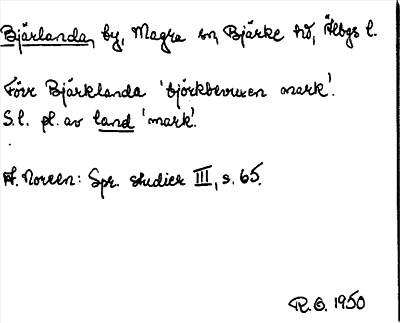 Bjärlanda, by, Magra sn, Bjärke hd, Älbgs l.
Förr Bjärklanda 'björkbevuxen mark'.
S.l. pl. av land 'mark'.
A. Noreen: Spr. studier III, s. 65.
R.O. 1950